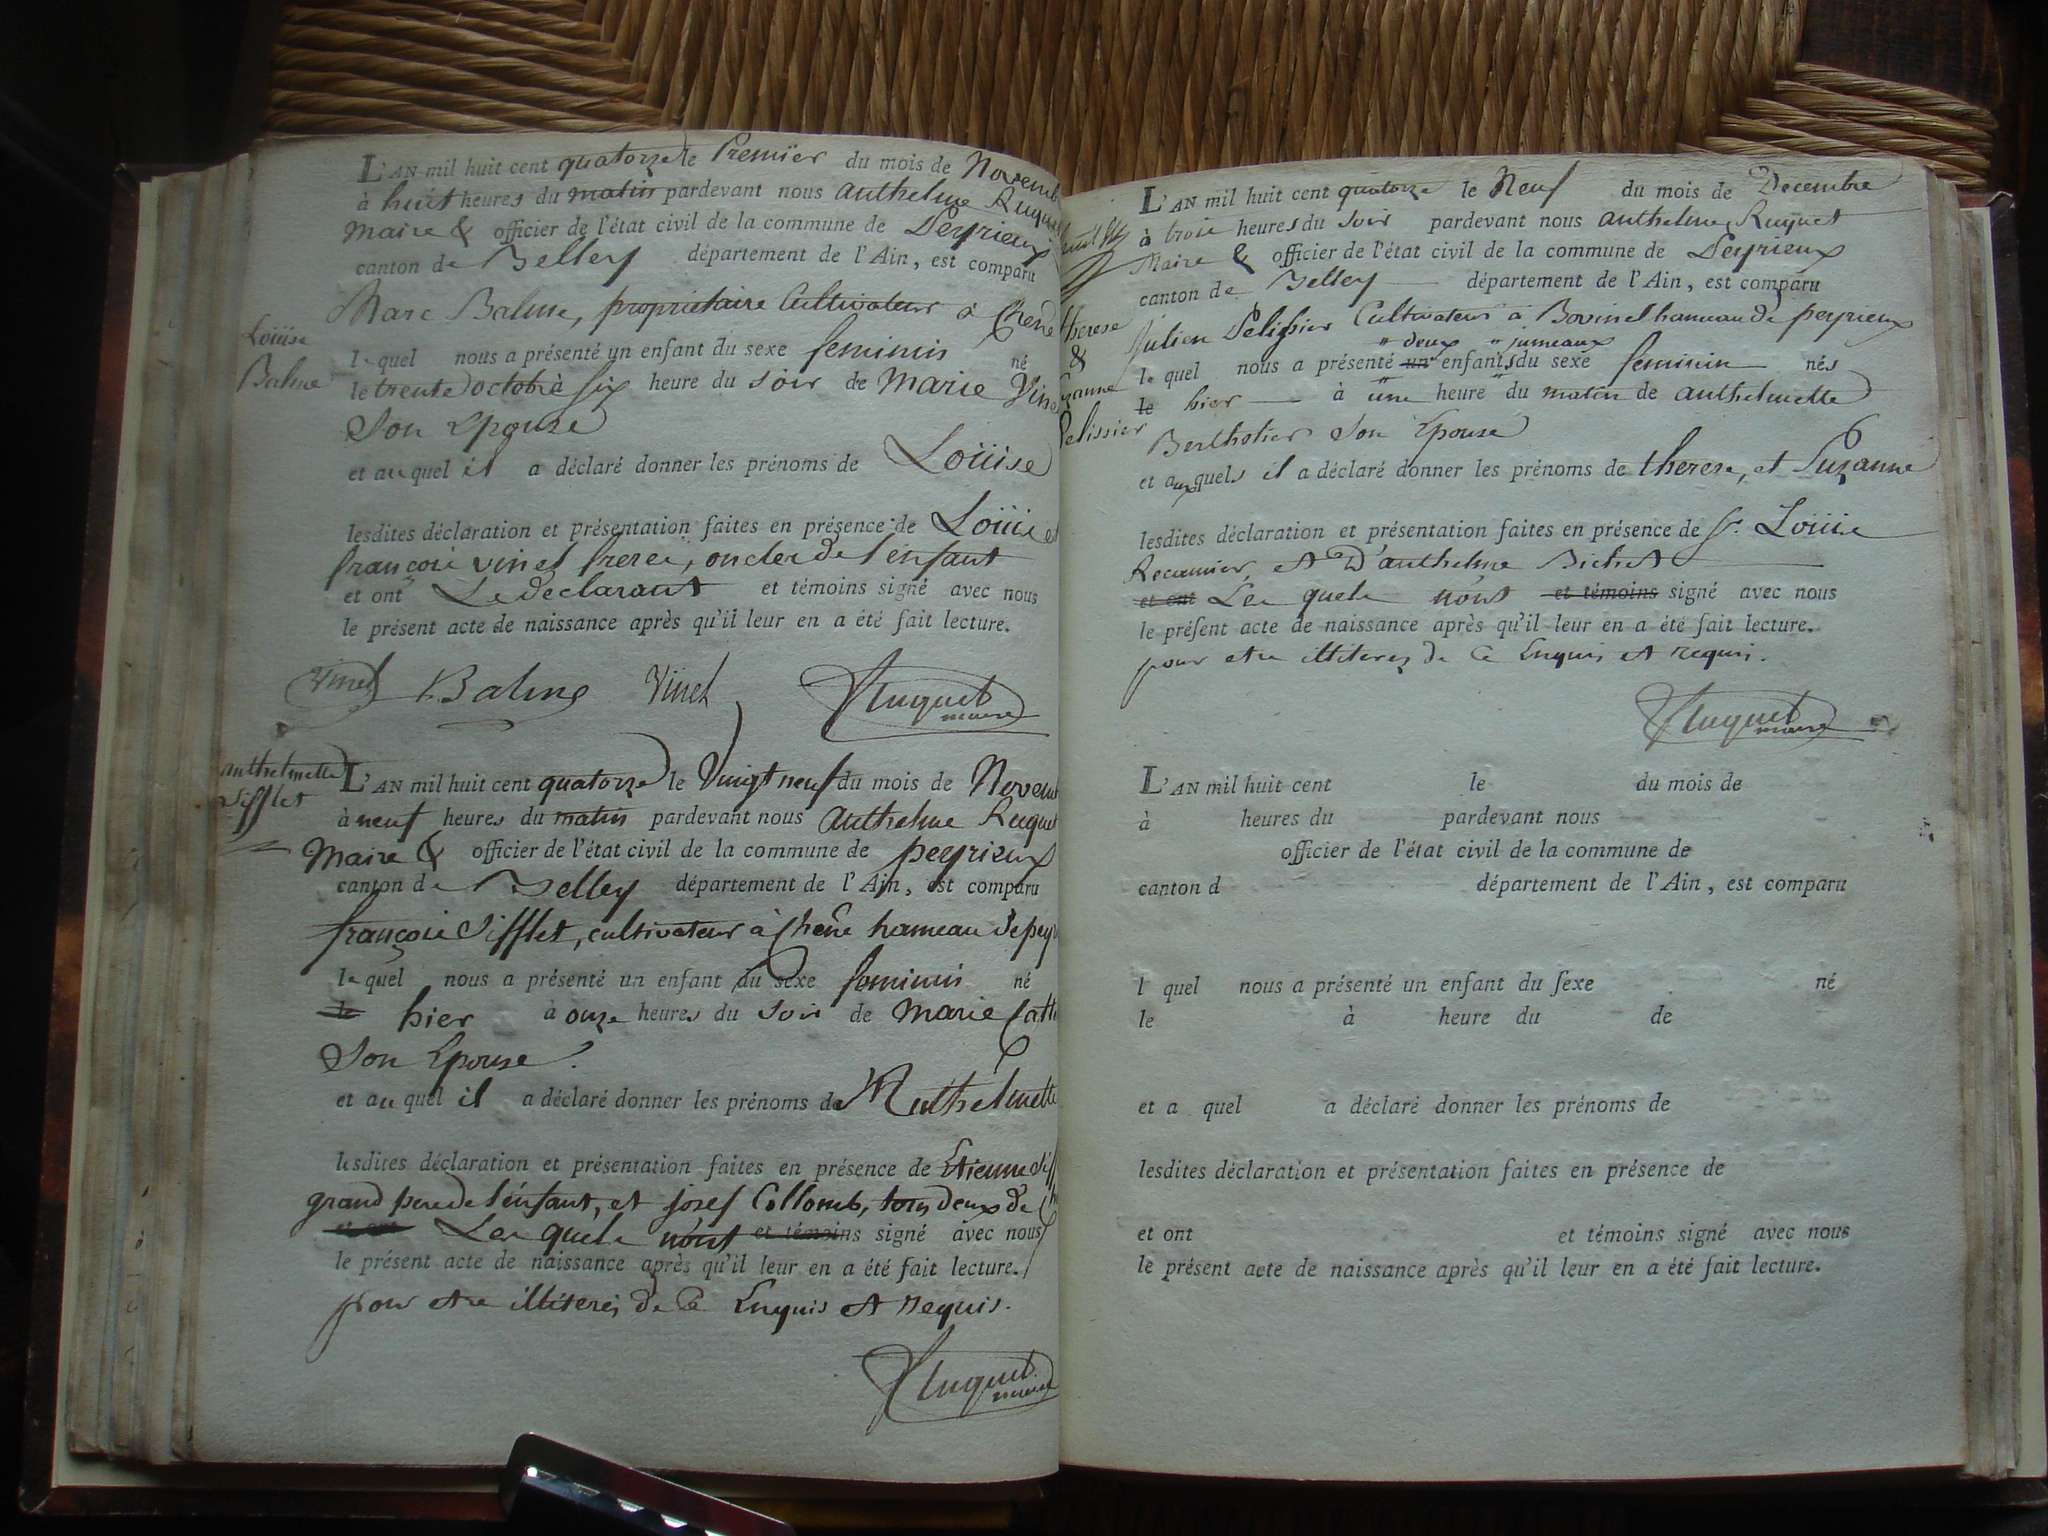 L'AN mil huit cent quatorze le Premier du mois de Novemb
à huit heures du matin pardevant nous anthelme Ruquet
Maire & officier de l'état civil de la commune de Peyrieux
canton de Belley département de l'Ain, est comparu
Marc Balme, propriétaire Cultivateur à Chene
Loüise
Balme
lequel nous a présenté un enfant du sexe feminin né
le trente octobre à six heure du soir de Marie Vinet
Son Epouse
et au quel il a déclaré donner les prénoms de Loüise
lesdites déclaration et présentation faites en présence de Loüis et
françois vinet freres, oncles de l'enfant
et ont Le declarant et témoins signé avec nous
le présent acte de naissance après qu'il leur en a été fait lecture.
Vinet Balme Vinet Ruquet
maire
anthelmette
Sifflet
L'AN mil huit cent quatorze le Vingt neuf du mois de Novem
à neuf heures du matin pardevant nous Anthelme Ruquet
Maire & officier de l'état civil de la commune de peyrieux
canton de Belley département de l'Ain, est comparu
françois Sifflet, cultivateur à Chene hameau de pey
lequel nous a présenté un enfant du sexe feminin né
le hier à onze heures du soir de Marie
Son Epouse
et au quel il a déclaré donner les prénoms de Anthelmette
lesdites déclaration et présentation faites en présence de Etienne Siff
grand pere de l'enfant, et josef Collomb, tous deux de
et ont Les quels n'ont et témoins signé avec nous
le présent acte de naissance après qu'il leur en a été fait lecture.
pour etre illiteres de Ce Enquis et requis.
Ruquet
maire
L'AN mil huit cent quatorze le Neuf du mois de Decembre
à trois heures du soir pardevant nous anthelme Ruquet
Maire & officier de l'état civil de la commune de Peyrieux
canton de Belley département de l'Ain, est comparu
Julien Pelissier Cultivateur à Bovinel hameau de peyrieux
therese
&
Suzanne
Pelissier
" deux " jumeaux
lequel nous a présenté un enfants du sexe feminin nés
le hier à une heure du matin de anthelmette
Berthotier Son Epouse
et aux quels il a déclaré donner les prénoms de therese, et Suzanne
lesdites déclaration et présentation faites en présence de Sr. Loüis
Recamier, et D'anthelme Bichet
et ont Les quels n'ont et témoins signé avec nous
le présent acte de naissance après qu'il leur en a été fait lecture.
pour etre illiteres de Ce Enquis et requis.
Ruquet
maire
L'AN mil huit cent le du mois de
à heures du pardevant nous
officier de l'état civil de la commune de
canton d département de l'Ain, est comparu
l quel nous a présenté un enfant du sexe né
le à heure du de
et a quel a déclaré donner les prénoms de
lesdites déclaration et présentation faites en présence de
et ont et témoins signé avec nous
le présent acte de naissance après qu'il leur en a été fait lecture.